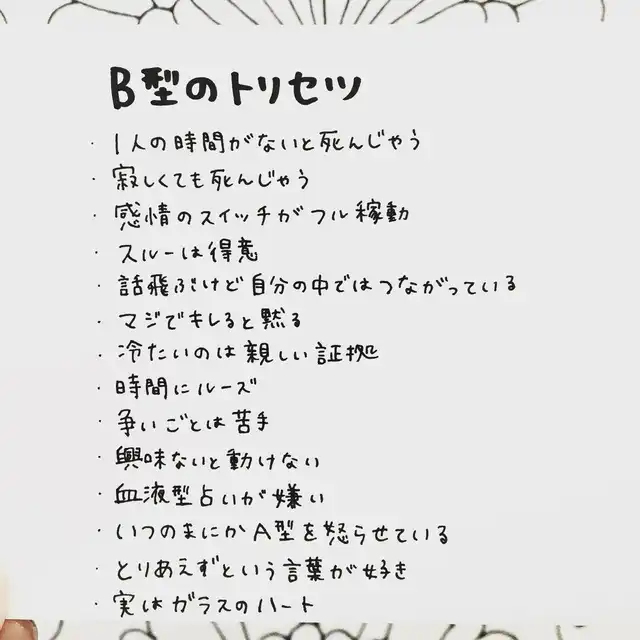 B型のトリセツ
・1人の時間がないと死んじゃう
・寂しくても死んじゃう
・感情のスイッチがフル稼動
・スルーは得意
・話飛ぶけど自分の中ではつながっている
・マジでキレると黙る
・冷たいのは親しい証拠
・時間にルーズ
・争いごとは苦手
・興味ないと動けない
・血液型占いが嫌い
・いつのまにかA型を怒らせている
・とりあえずという言葉が好き
・実はガラスのハート